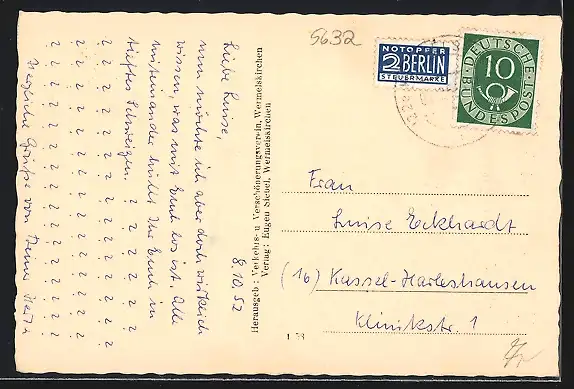 5632
NOTOPFER
2 BERLIN
STEUERMARKE
DEUTSCHE
10
BUNDESPOST
8.10.52
Liebe Luise,
nun möchte ich aber doch wirklich
wissen was mit Euch los ist. Alle
miteinander hüllt Ihr Euch in
tiefstes Schweigen. ? ? ? ? ?
? ? ? ? ? ? ? ? ? ? ? ? ?
? ? ? ? ? ? ? ? ? ? ? ? ?
? ? ? ? ? ? ? ? ? ? ? ? ?
Herzliche Grüße von Deiner
Herausgeb.: Verkehrs- u Verschönerungsverein, Wermelskirchen
Verlag: Eugen Siebel, Wermelskirchen
Frau
Luise Eckhardt
(16) Kassel-Harleshausen
Klinikstr. 1